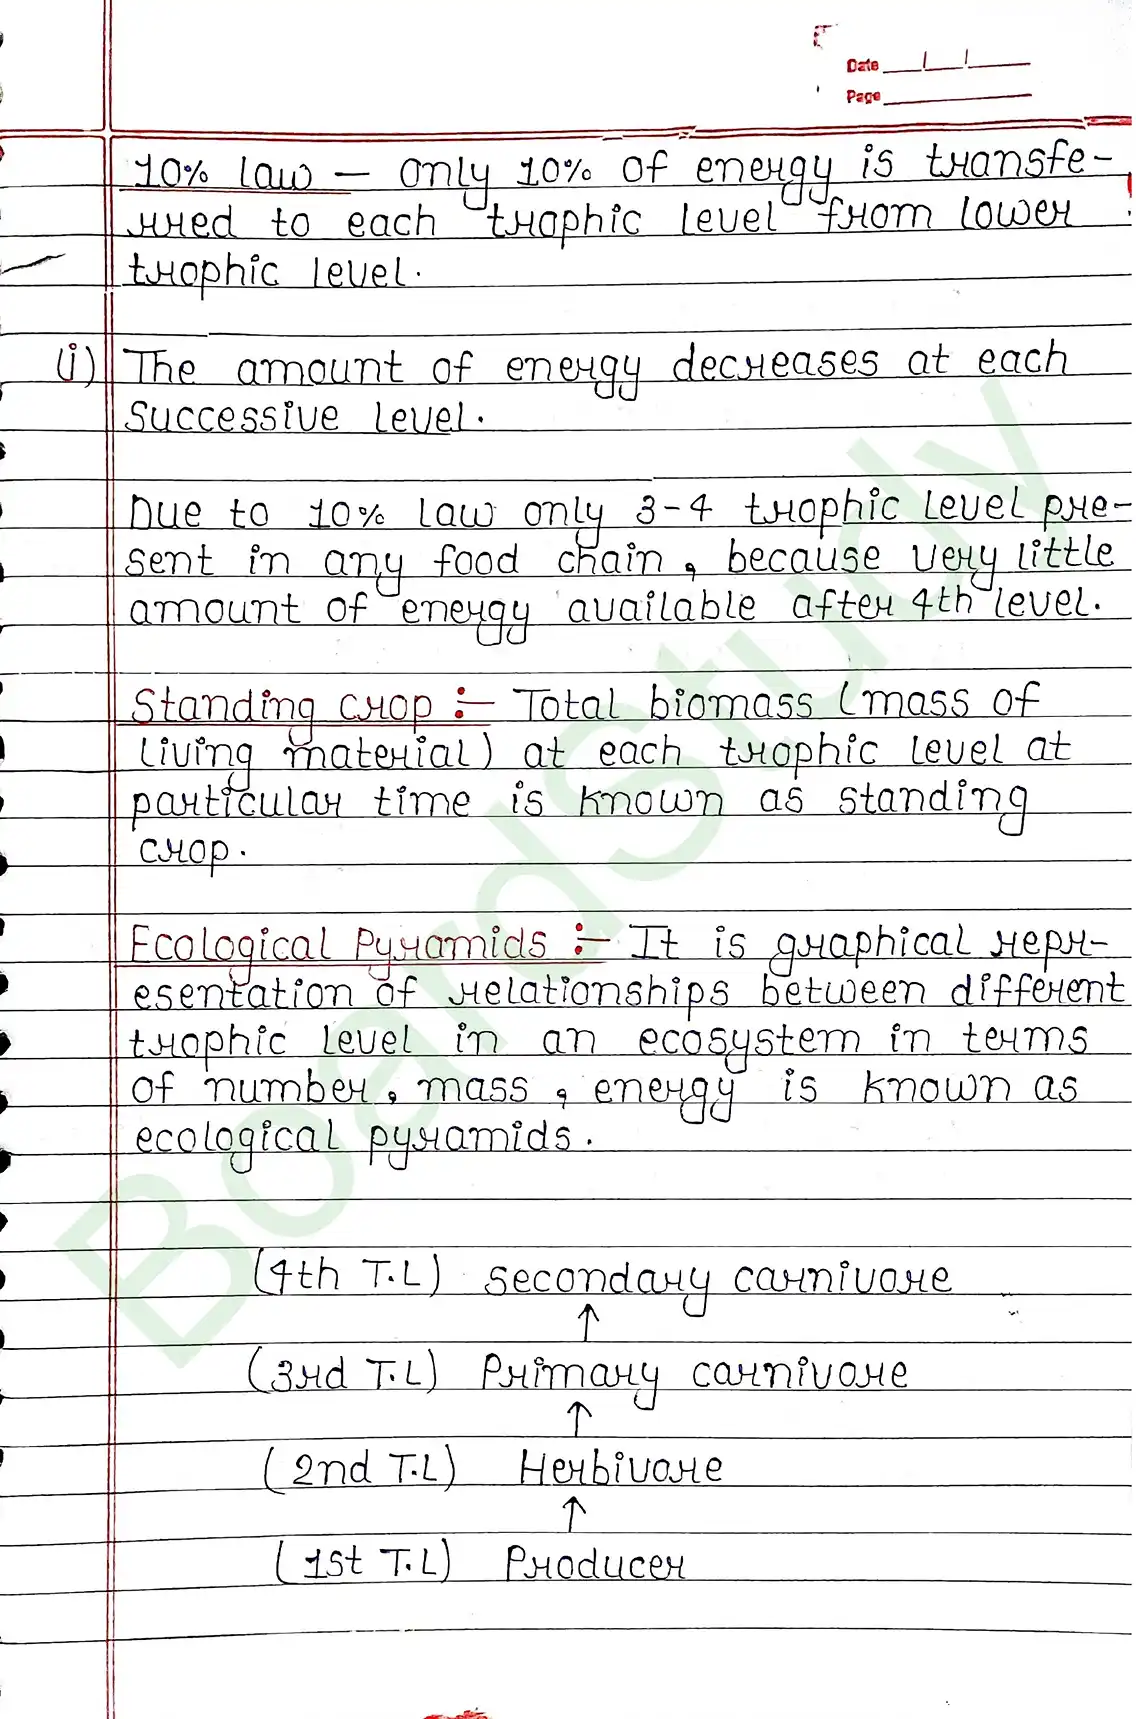 Date
Page
10% law – only 10% of energy is transfe-
rred to each trophic level from lower
trophic level.
(i) The amount of energy decreases at each
successive level.
Due to 10% law only 3-4 trophic level pre-
sent in any food chain, because very little
amount of energy available after 4th level.
Standing crop :– Total biomass (mass of
living material) at each trophic level at
particular time is known as standing
crop.
Ecological Pyramids :– It is graphical repr-
esentation of relationships between different
trophic level in an ecosystem in terms
of number, mass, energy is known as
ecological pyramids.
(4th T.L) secondary carnivore
↑
(3rd T.L) Primary carnivore
↑
(2nd T.L) Herbivore
↑
(1st T.L) Producer
BoardStudy